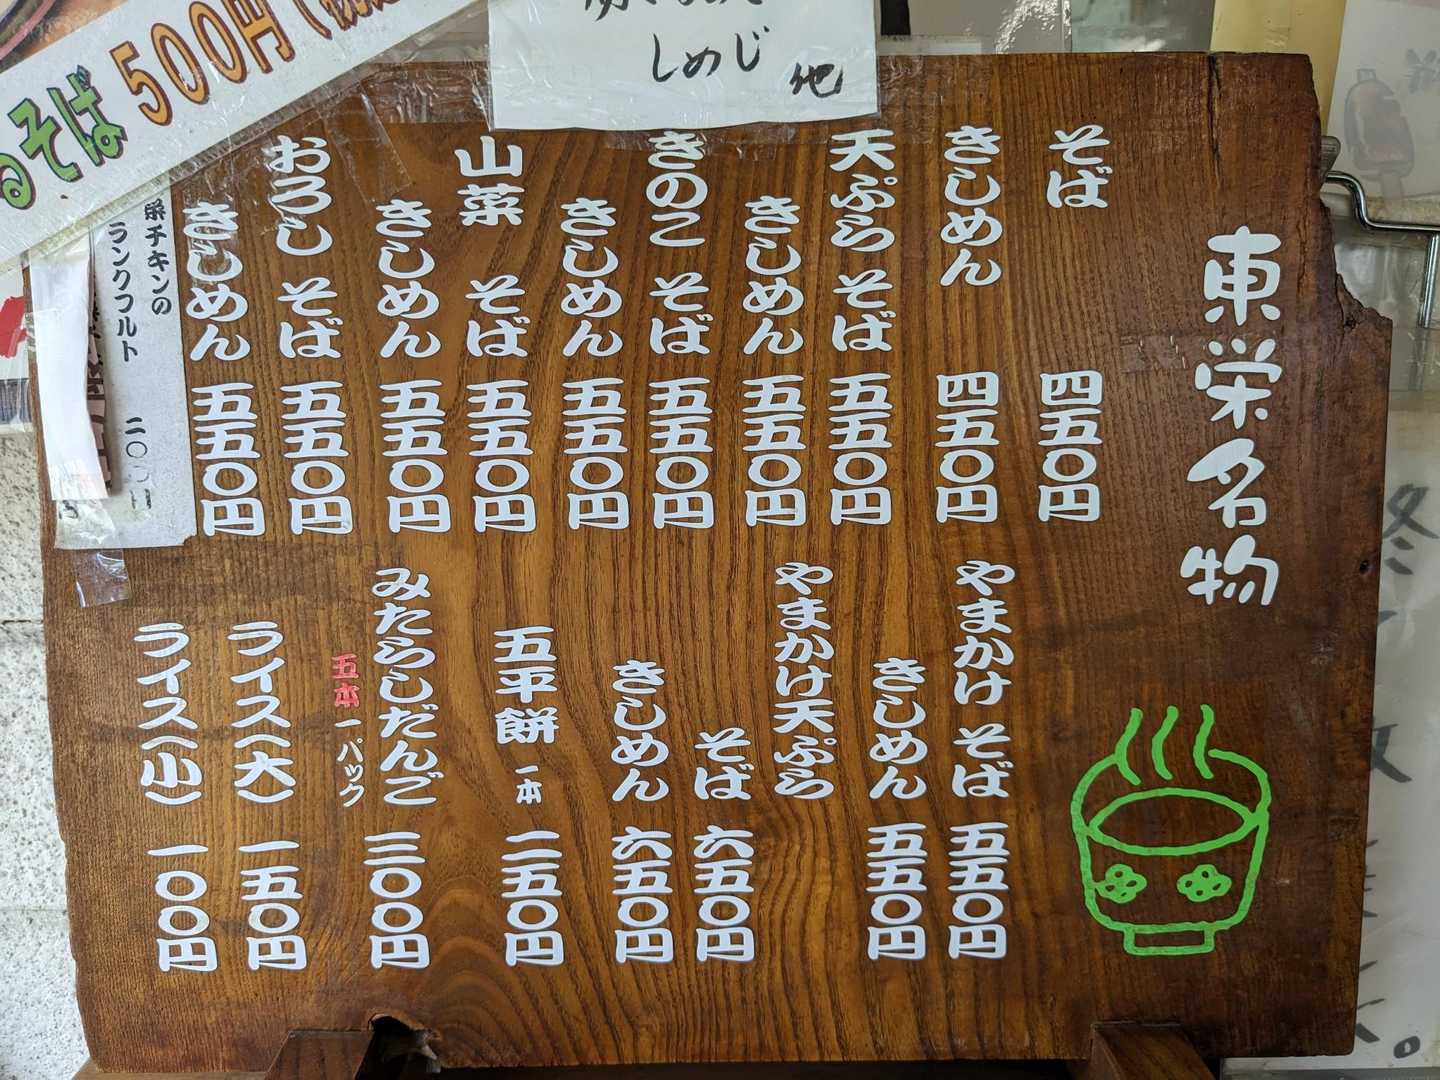 東栄名物
そば 四五〇円
きしめん 四五〇円
天ぷら そば 五五〇円
きしめん 五五〇円
きのこ そば 五五〇円
きしめん 五五〇円
山菜 そば 五五〇円
きしめん 五五〇円
おろし そば 五五〇円
きしめん 五五〇円
やまかけ そば 五五〇円
きしめん 五五〇円
やまかけ天ぷら
そば 六五〇円
きしめん 六五〇円
五平餅 一本 二五〇円
みたらしだんご 三〇〇円
五本 一パック
ライス(大) 一五〇円
ライス(小) 一〇〇円
チキンの
ランクフルト
るそば 500円
しめじ
他